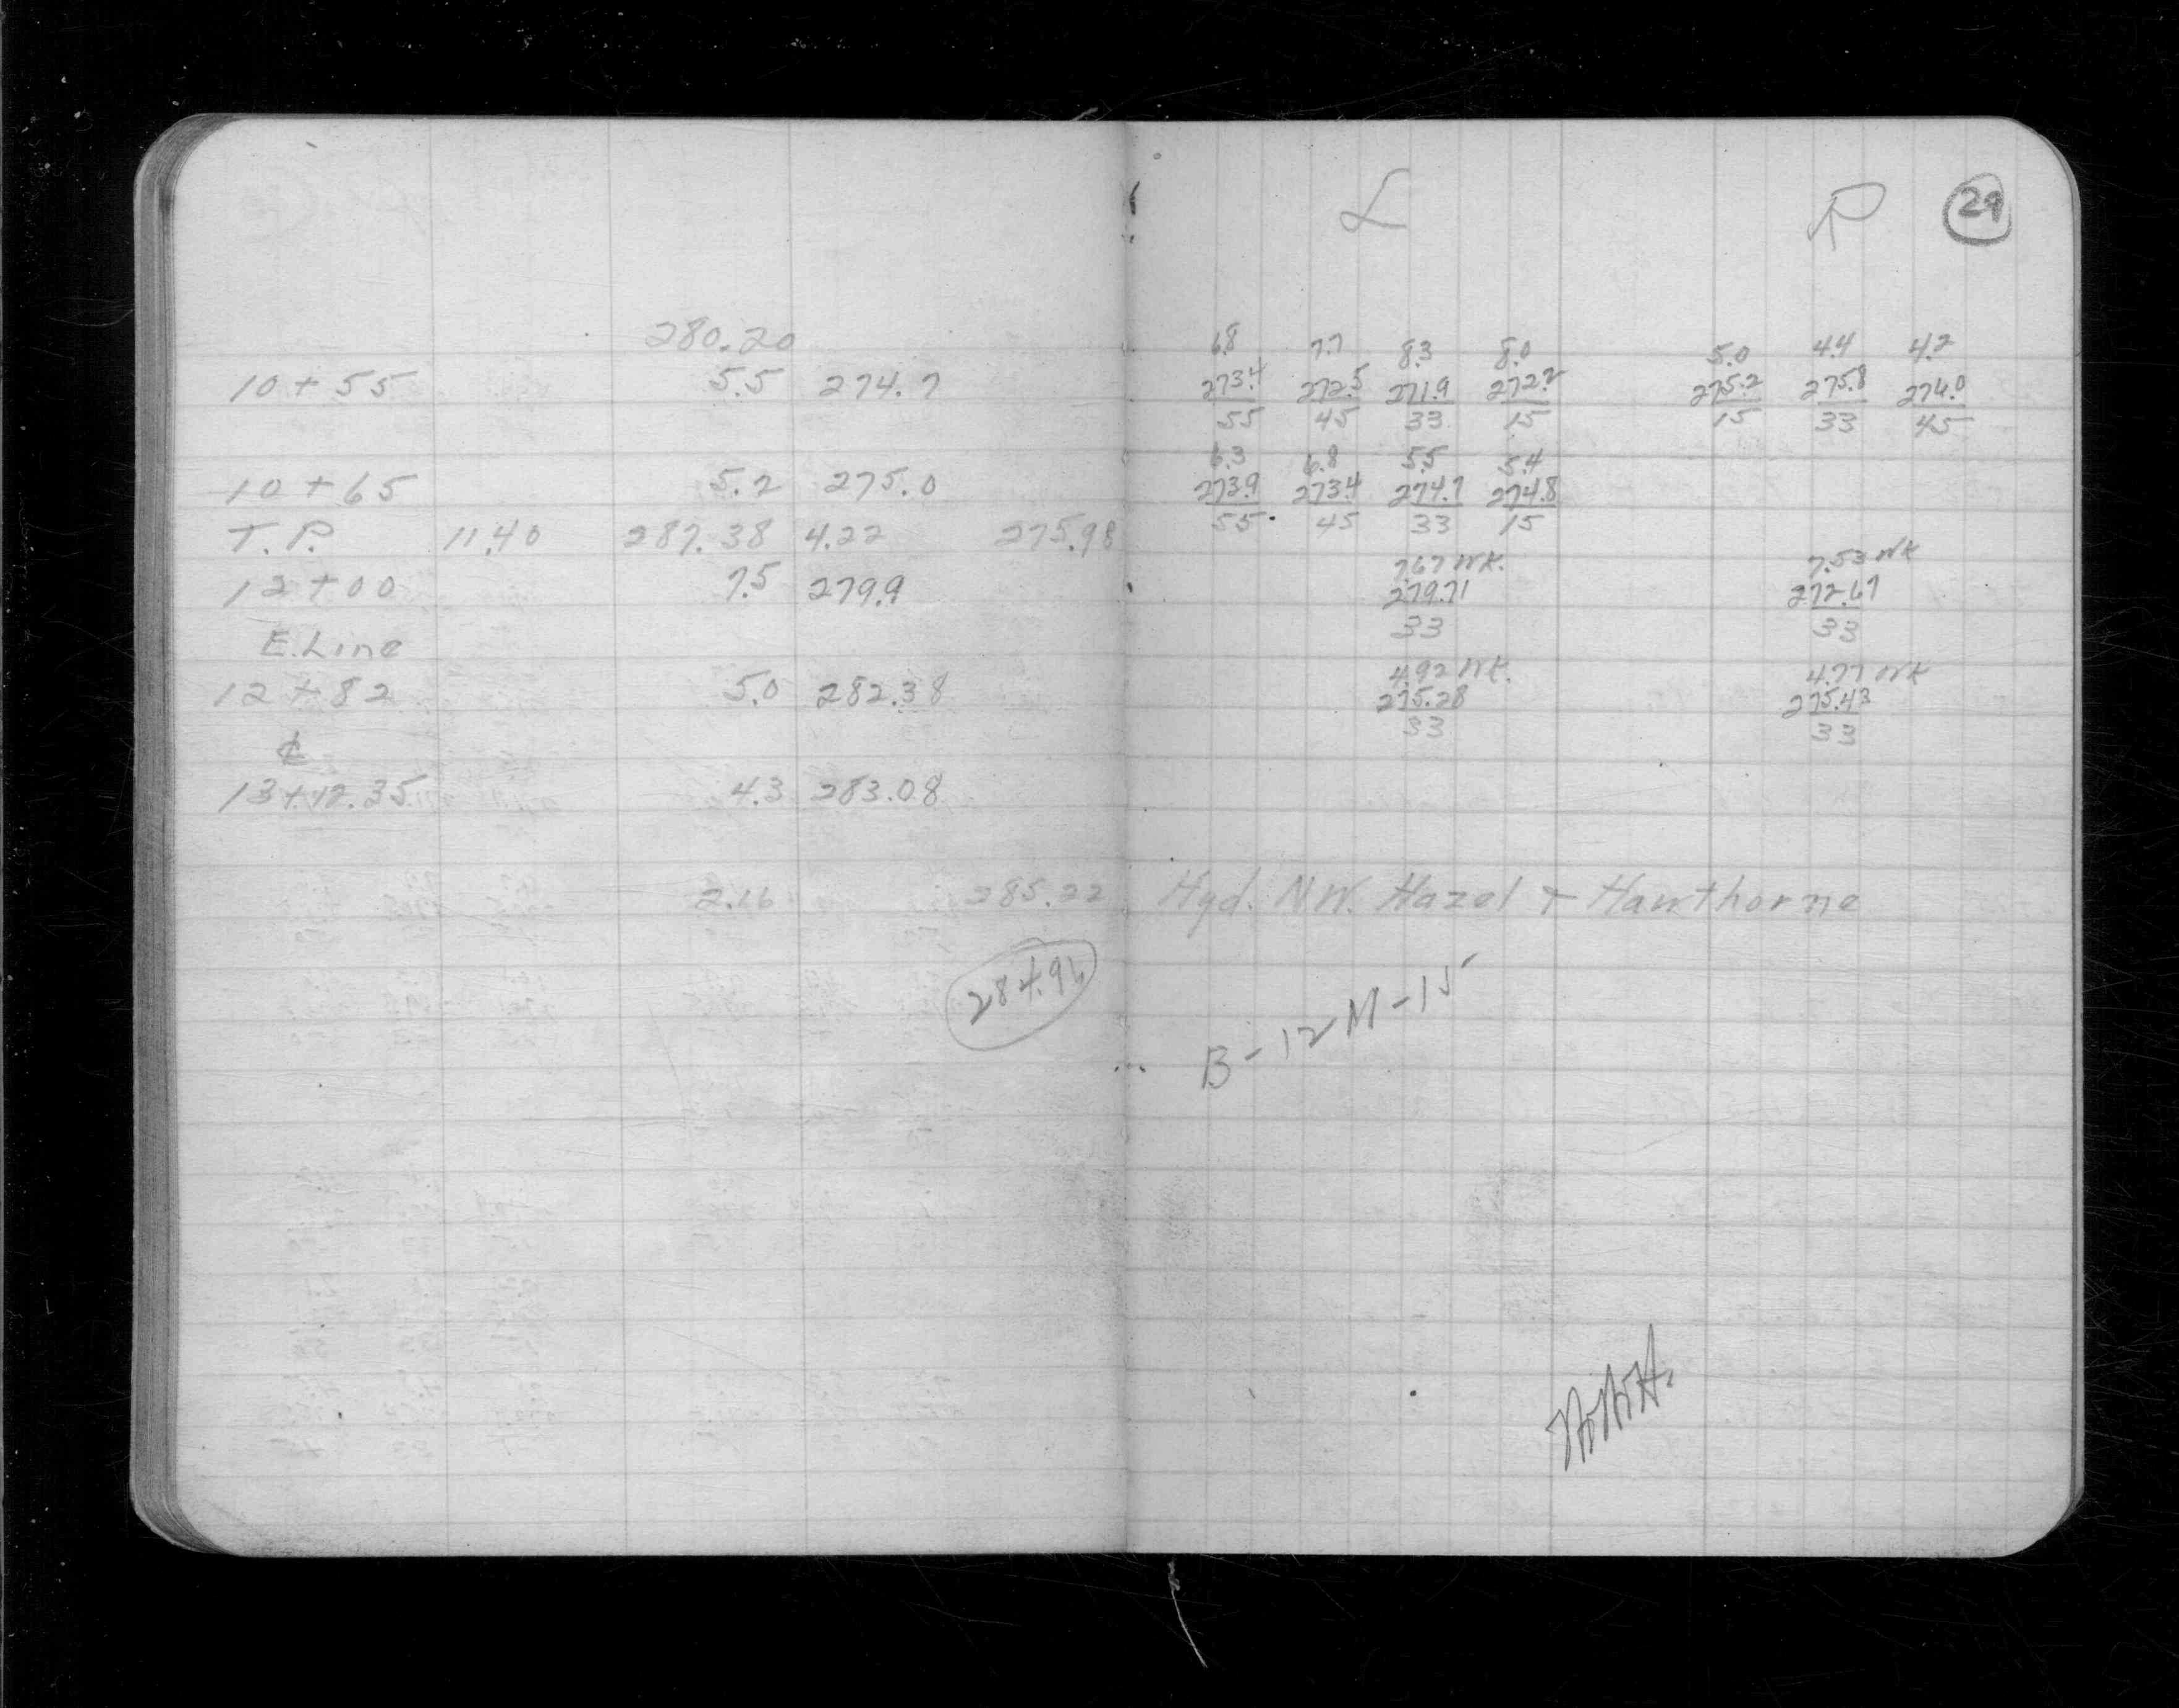 L R 29
280.20
6.8 7.7 8.3 8.0 5.0 4.4 4.2
10+55 5.5 274.7 273.4 272.5 271.9 272.2 275.2 275.8 276.0
55 45 33 15 15 33 45
6.3 6.8 5.5 5.4
10+65 5.2 275.0 273.9 273.4 274.7 274.8
55 45 33 15
T.P. 11.40 287.38 4.22 275.98
7.67 WK. 7.53 WK
12+00 7.5 279.9 279.71 272.67
33 33
E. Line
4.92 WK. 4.77 WK
12+82 5.0 282.38 275.28 275.43
33 33
℄
13+12.35 4.3 283.08
2.16 285.22 Hyd. NW. Hazel + Hawthorne
284.96
B-12 M-15